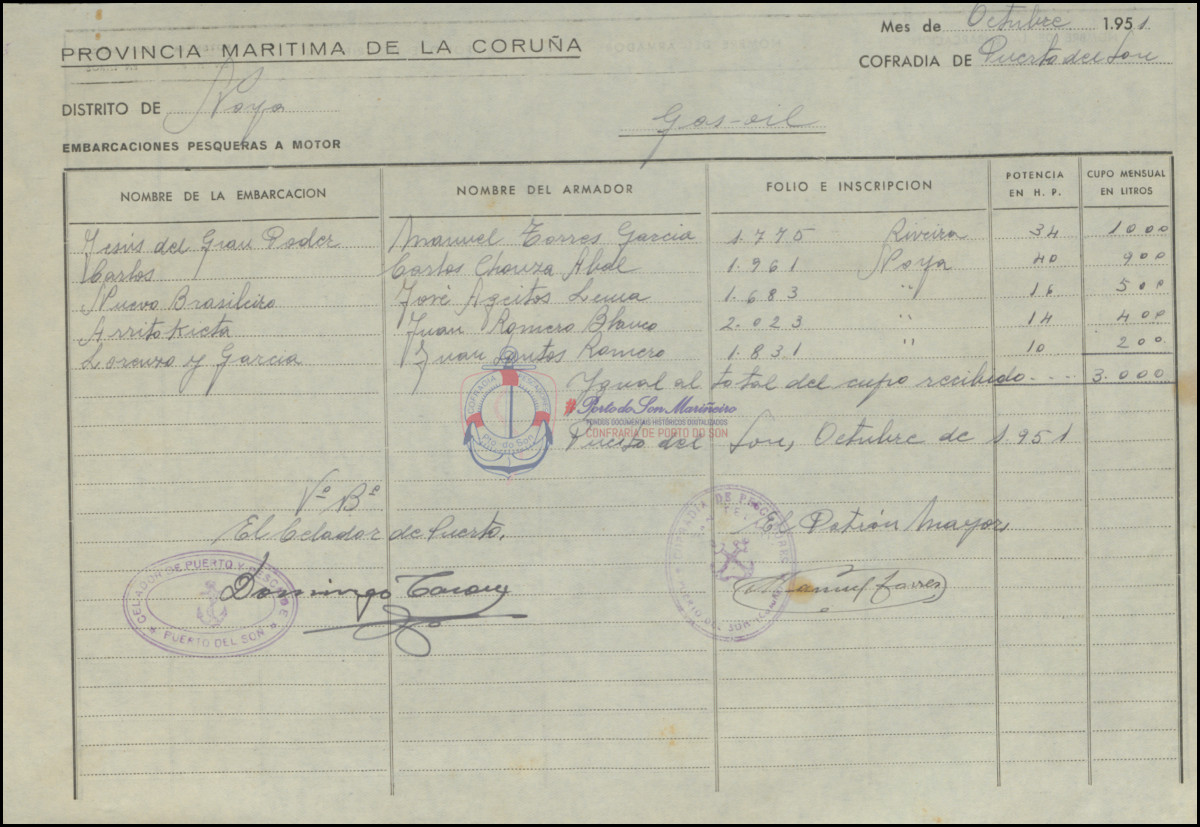 Mes de Octubre 1.951
PROVINCIA MARITIMA DE LA CORUÑA
COFRADIA DE Puerto del Son
DISTRITO DE Noya
Gas-oil
EMBARCACIONES PESQUERAS A MOTOR
NOMBRE DE LA EMBARCACION NOMBRE DEL ARMADOR FOLIO E INSCRIPCION POTENCIA EN H. P. CUPO MENSUAL EN LITROS
Jesús del Gran Poder Manuel Torres Garcia 1.775 Riveira 34 1000
Carlos Carlos Chouza Abal 1.961 Noya 40 900
Nuevo Brasileiro José Ageitos Lema 1.683 " 16 500
Arritokieta Juan Romero Blanco 2.023 " 14 400
Lorenzo y Garcia Juan Santos Romero 1.831 " 10 200
Igual al total del cupo recibido.... 3.000
COFRADIA
Pto. do Son
#Porto do Son Mariñeiro
FONDOS DOCUMENTAIS HISTÓRICOS DIGITALIZADOS
CONFRARÍA DE PORTO DO SON
Puerto del Son, Octubre de 1.951
Vº Bº
El Celador de Puerto, El Patrón Mayor,
CELADOR DE PUERTO Y PESCA
PUERTO DEL SON
Domingo
COFRADIA DE PESCADORES
Manuel Torres